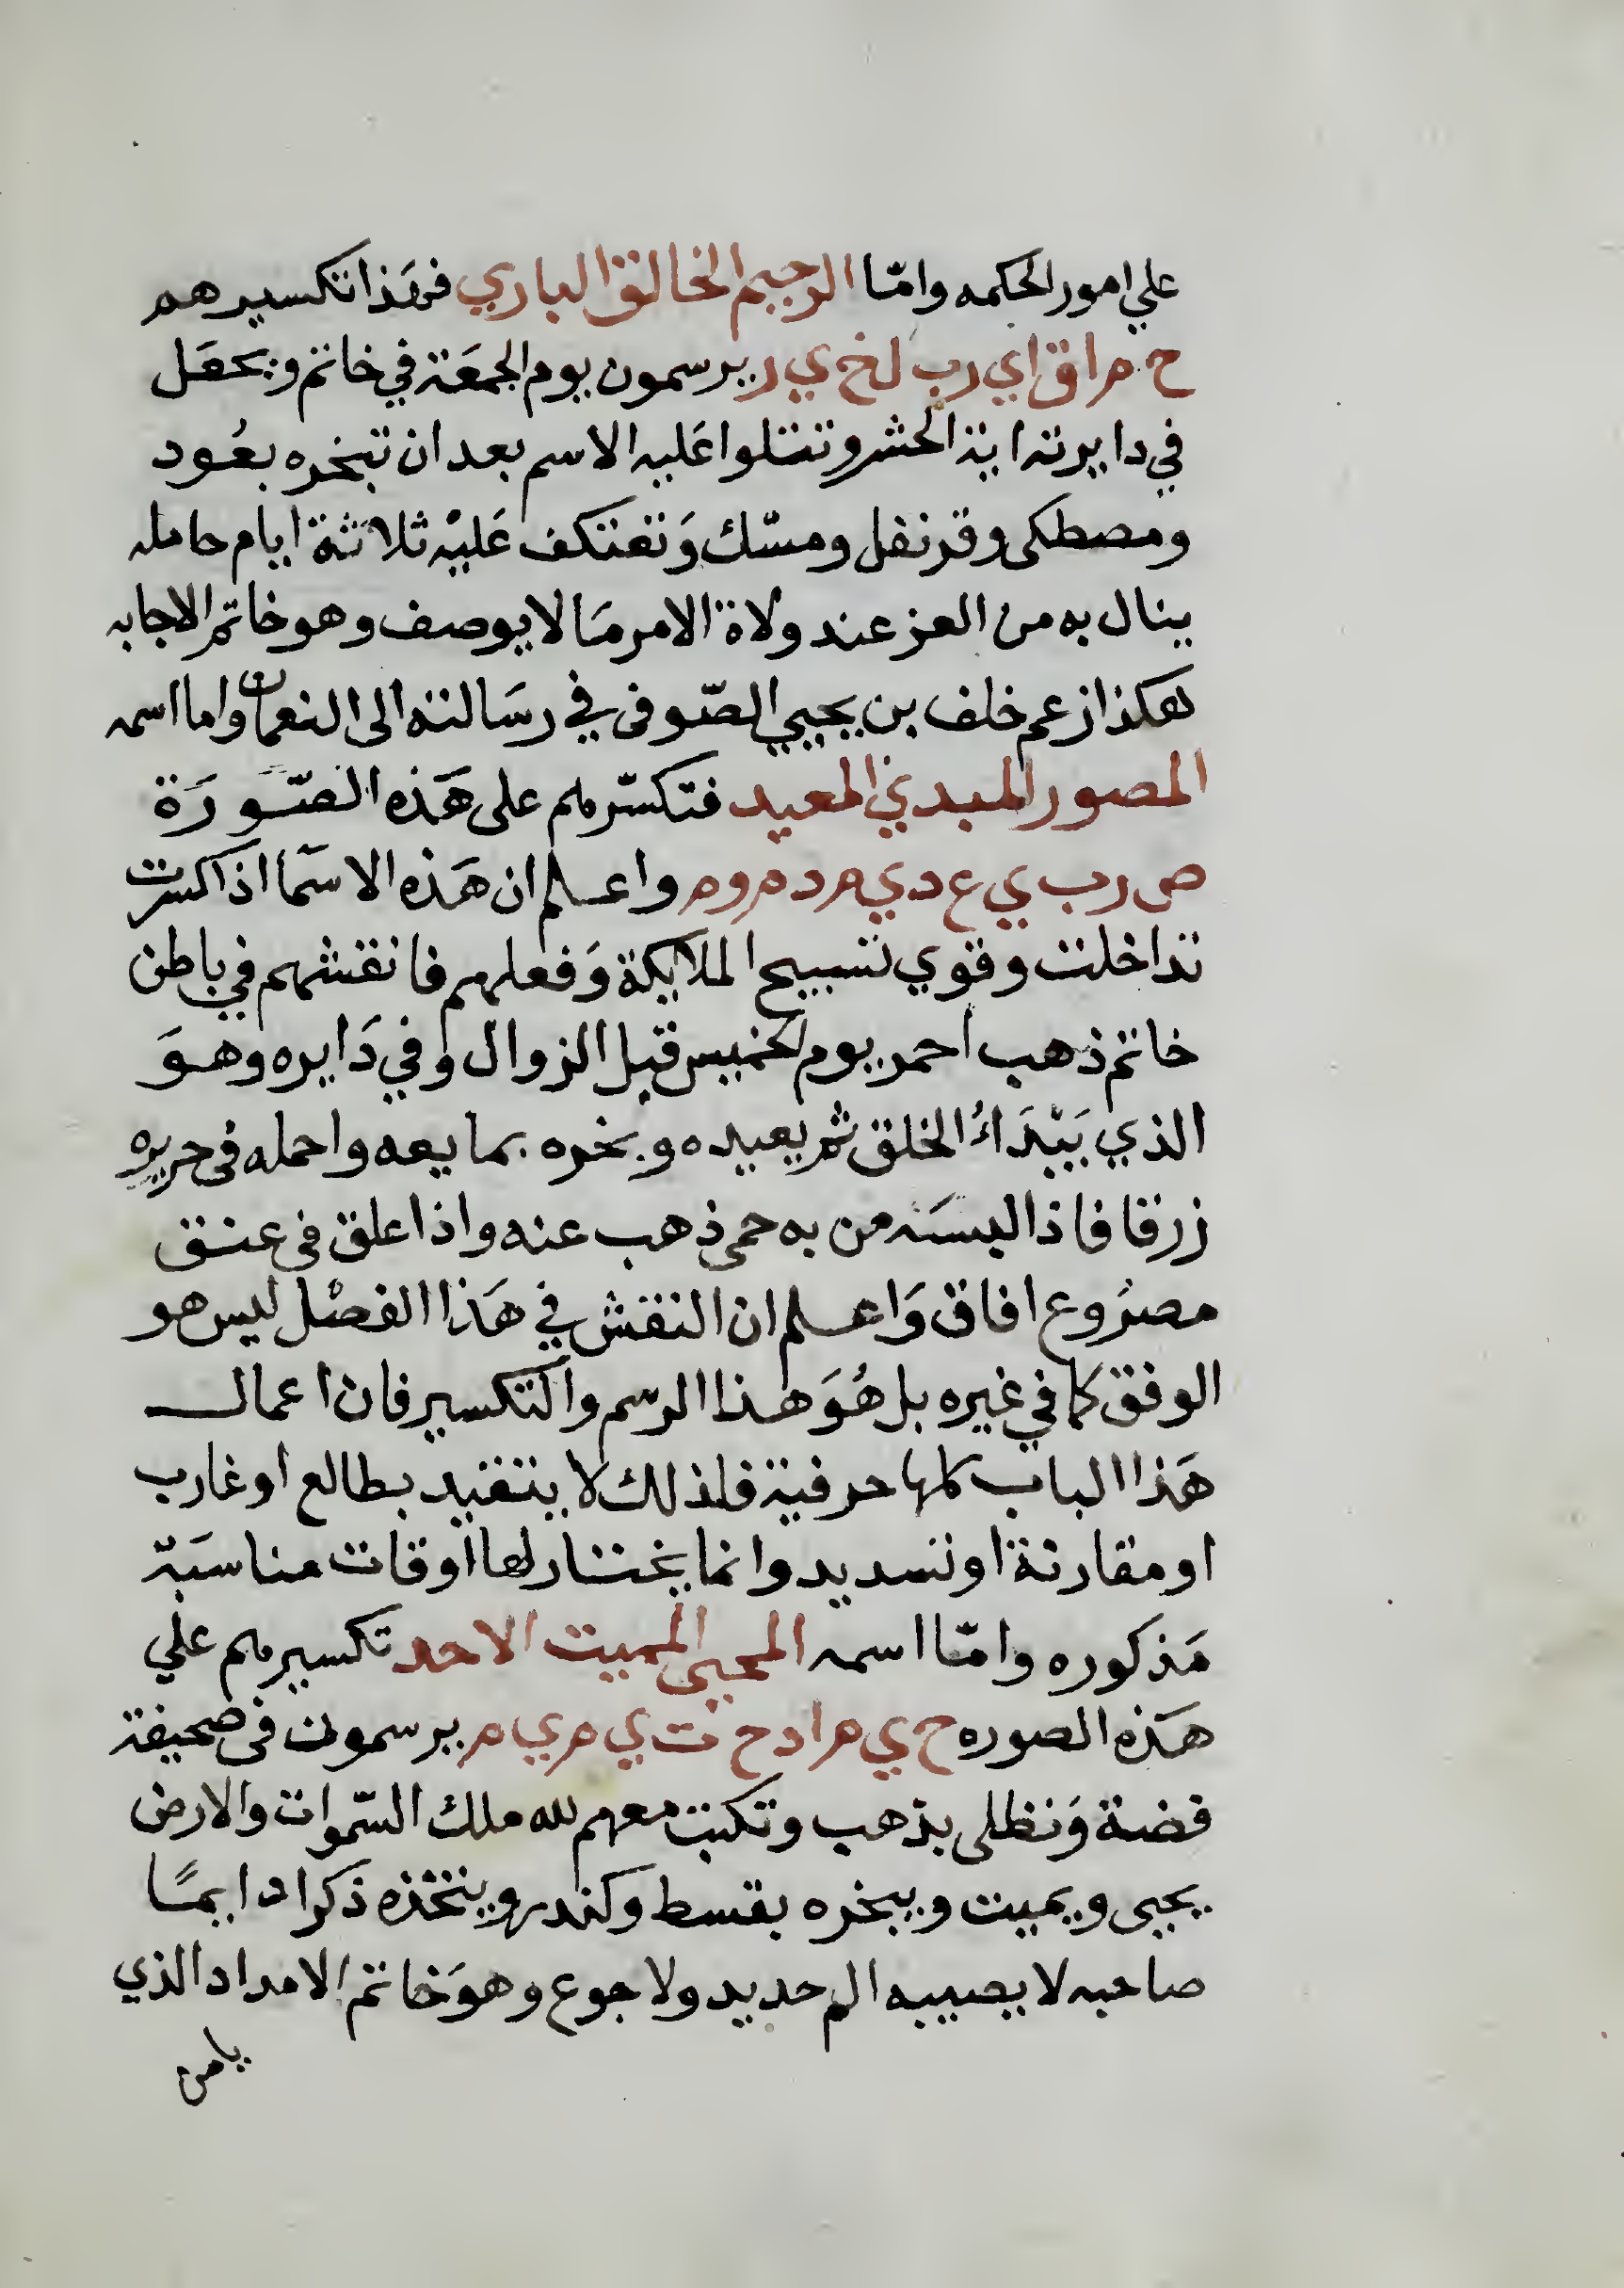 علي امور الحكمه وامّا الرحيم الخالق الباري فهَذا تكسيرهم
ح م ا ق ا ي ر ب ل خ ي ر يرسمون يوم الجمعَة في خاتم ويجعَل
في دايرته اية الحشر وتتلوا عَليه الاسم بعد ان تبخره بعُود
ومصطكى وقرنفل ومسّك وَتعتكف عَليْه ثلاثَة ايام حامله
ينال به من العز عند ولاة الامر مَا لا يوصف وهو خاتم الاجابه
هكذا زعم خلف بن يحيي الصّوفى في رسَالته الى النعمان واما اسمه
المصور المبدي المعيد فتكسّرهم على هَذه الصّورَة
ص ر ب ي ع د ي م د م و م واعلم ان هَذه الاسمَا اذا كسرت
تداخلت وقوي تسبيح الملايكة وَفعلهم فانقشهم في باطن
خاتم ذهب احمر يوم الخميس قبل الزوال وفي دَايره وهوَ
الذي يَبْدَاُ الخلق ثم يعيده وبخره بمايعه واحمله فى حريره
زرقا فاذا البسَته من به حمى ذهب عنه واذا علق فى عنق
مصرُوع افاق وَاعلم ان النقش في هَذا الفصْل ليس هو
الوفق كما في غيره بل هُوَ هذا الرسم والتكسير فان اعمال
هَذا الباب كلها حرفية فلذلك لا يتقيد بطالع او غارب
او مقارنة او تسديد وانما يختار لها اوقات مناسبَة
مَذكوره وامّا اسمه المحيى المميت الاحد تكسيرهم علي
هَذه الصوره ح ي م ا د ح ت ي م ي م يرسمون فى صحيفة
فضة وَتطلى بذهب وتكتب معهم لله ملك السّموات والارض
يحيى ويميت ويبخره بقسط وكندر ويتخذه ذكرا دايمًا
صاحبه لا يصيبه الم حديد ولا جوع وهوَ خاتم الامداد الذي
يامن